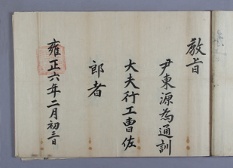 教旨
尹東源為通訓
大夫行工曹佐
郎者
雍正六年二月初三日